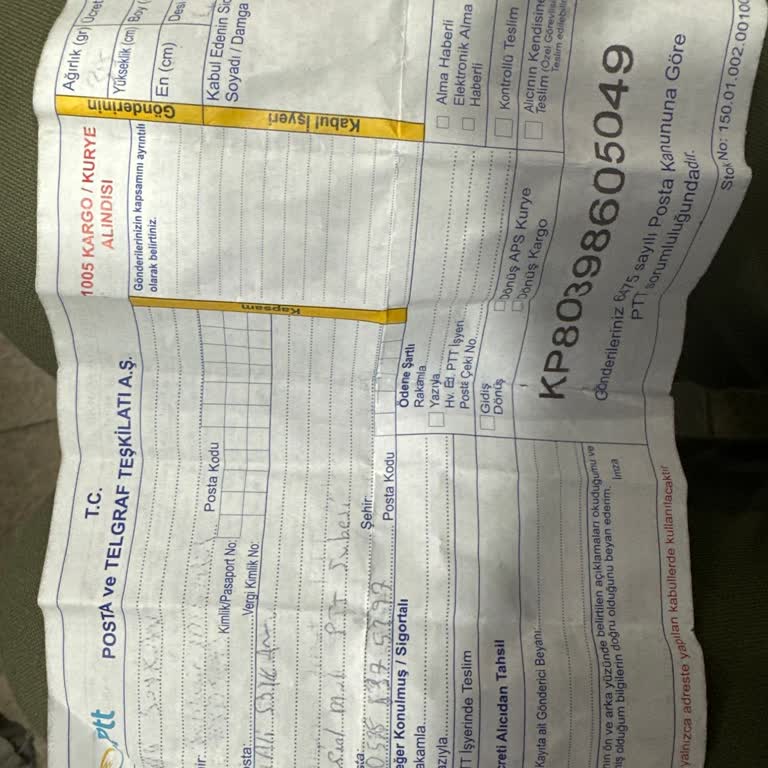 Ptt
T.C.
POSTA ve TELGRAF TEŞKİLATI A.Ş.
1005 KARGO / KURYE
ALINDISI
Ağırlık (gr)
Ücret
Yükseklik (cm)
Boy
En (cm)
Desi
Kabul Edenin Sic
Soyadı / Damga
Gönderinin
Kabul İşyeri
Gönderilerinizin kapsamını ayrıntılı
olarak belirtiniz.
Kapsam
Posta Kodu
Kimlik/Pasaport No:
Vergi Kimlik No:
Şehir
Posta Kodu
0535 837 9797
eğer Konulmuş / Sigortalı
akamla
azıyla
TT İşyerinde Teslim
creti Alıcıdan Tahsil
Ödeme Şartlı
Rakamla
Yazıyla
Hv. Ed. PTT İşyeri
Posta Çeki No.
Gidiş
Dönüş
Dönüş APS Kurye
Dönüş Kargo
Alma Haberli
Elektronik Alma
Haberli
Kontrollü Teslim
Alıcının Kendisine
Teslim (Özel Görevlisi
Teslim edilebilir
KP80398605049
Kayıta ait Gönderici Beyanı
nın ön ve arka yüzünde belirtilen açıklamaları okuduğumu ve
miş olduğum bilgilerin doğru olduğunu beyan ederim.
İmza
Gönderileriniz 6475 sayılı Posta Kanununa Göre
PTT sorumluluğundadır.
yalnızca adreste yapılan kabullerde kullanılacaktır
Stok No: 150.01.002.00100